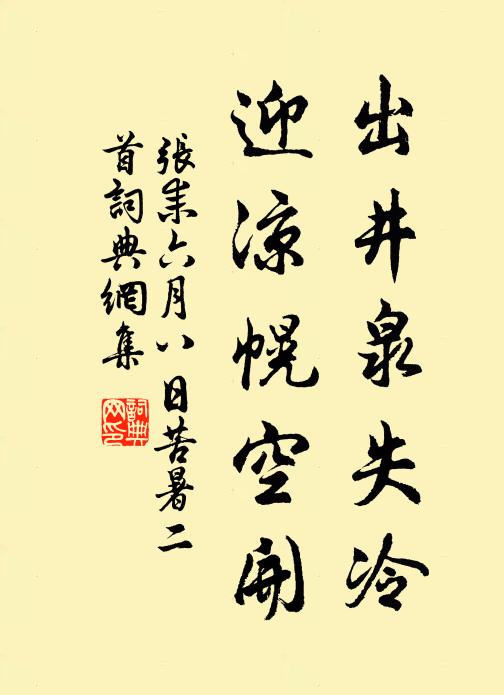 出井泉失冷
迎涼幌空開
張耒六月八日苦暑二
首詞典網集
詞典
網印